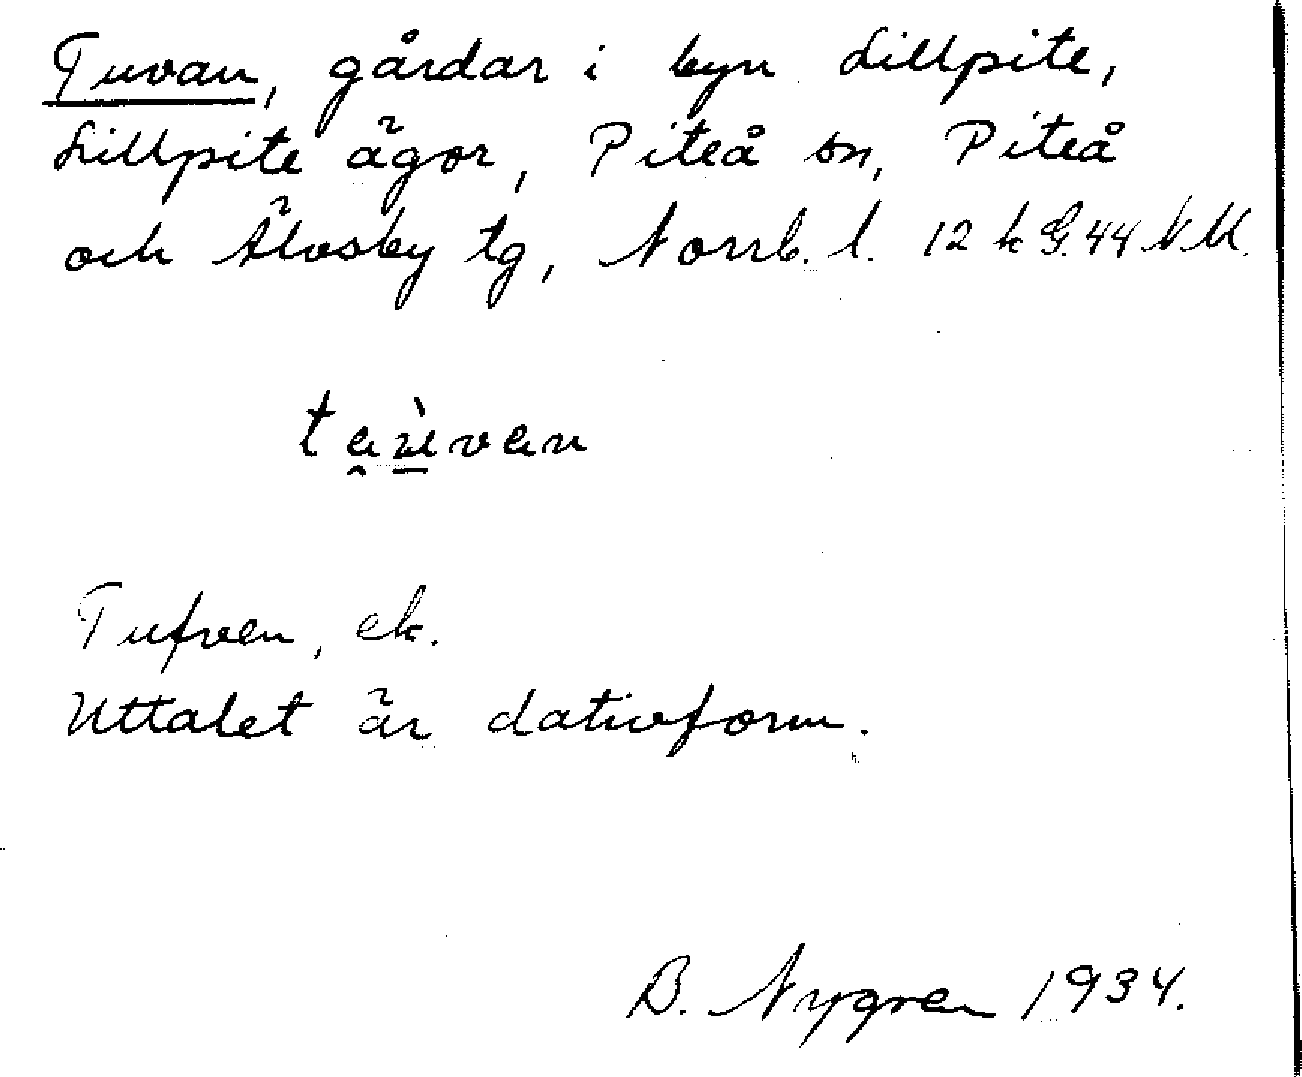 Tuvan, gårdar i byn Lillpite,
Lillpite ägor, Piteå sn, Piteå
och Älvsby tg, Norrb. l. 12 k G. 44 NU.
tauvan
Tufven, ek.
Uttalet är dativform.
B. Nygren 1934.